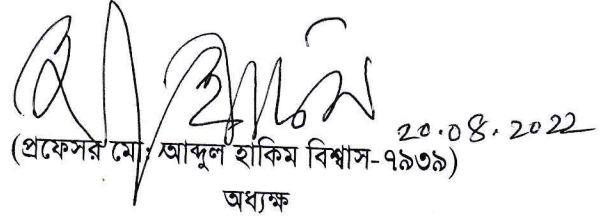 20.08.2022
(প্রফেসর মো: আব্দুল হাকিম বিশ্বাস-৭৯৩৯)
অধ্যক্ষ